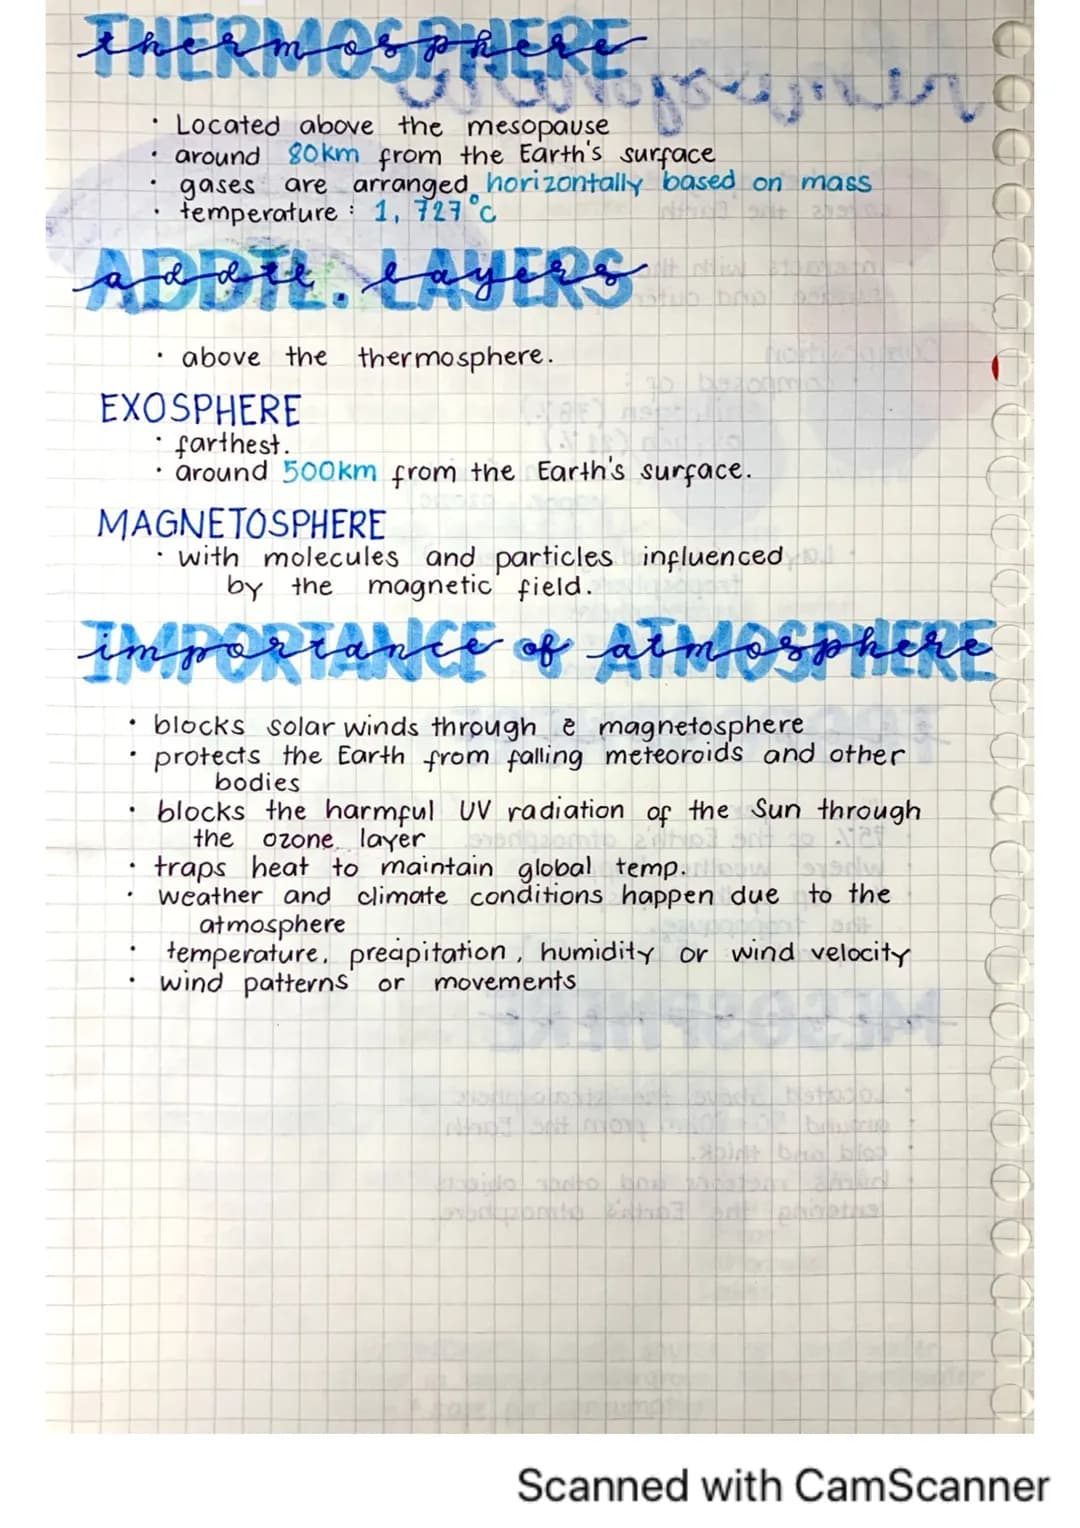 THERMOSPHERE
thermosphere
· Located above the mesopause
· around 80km from the Earth's surface
· gases are arranged horizontally based on mass
· temperature : 1, 727°c
ADDTL. LAYERS
addtl. layers
· above the thermosphere.
EXOSPHERE
· farthest.
· around 500km from the Earth's surface.
MAGNETOSPHERE
· with molecules and particles influenced
by the magnetic field.
IMPORTANCE of ATMOSPHERE
importance of atmosphere
· blocks solar winds through magnetosphere
· protects the Earth from falling meteoroids and other
bodies
· blocks the harmful UV radiation of the Sun through
the ozone layer
· traps heat to maintain global temp.
· weather and climate conditions happen due to the
atmosphere
· temperature, precipitation, humidity or wind velocity
· wind patterns or movements
Scanned with CamScanner